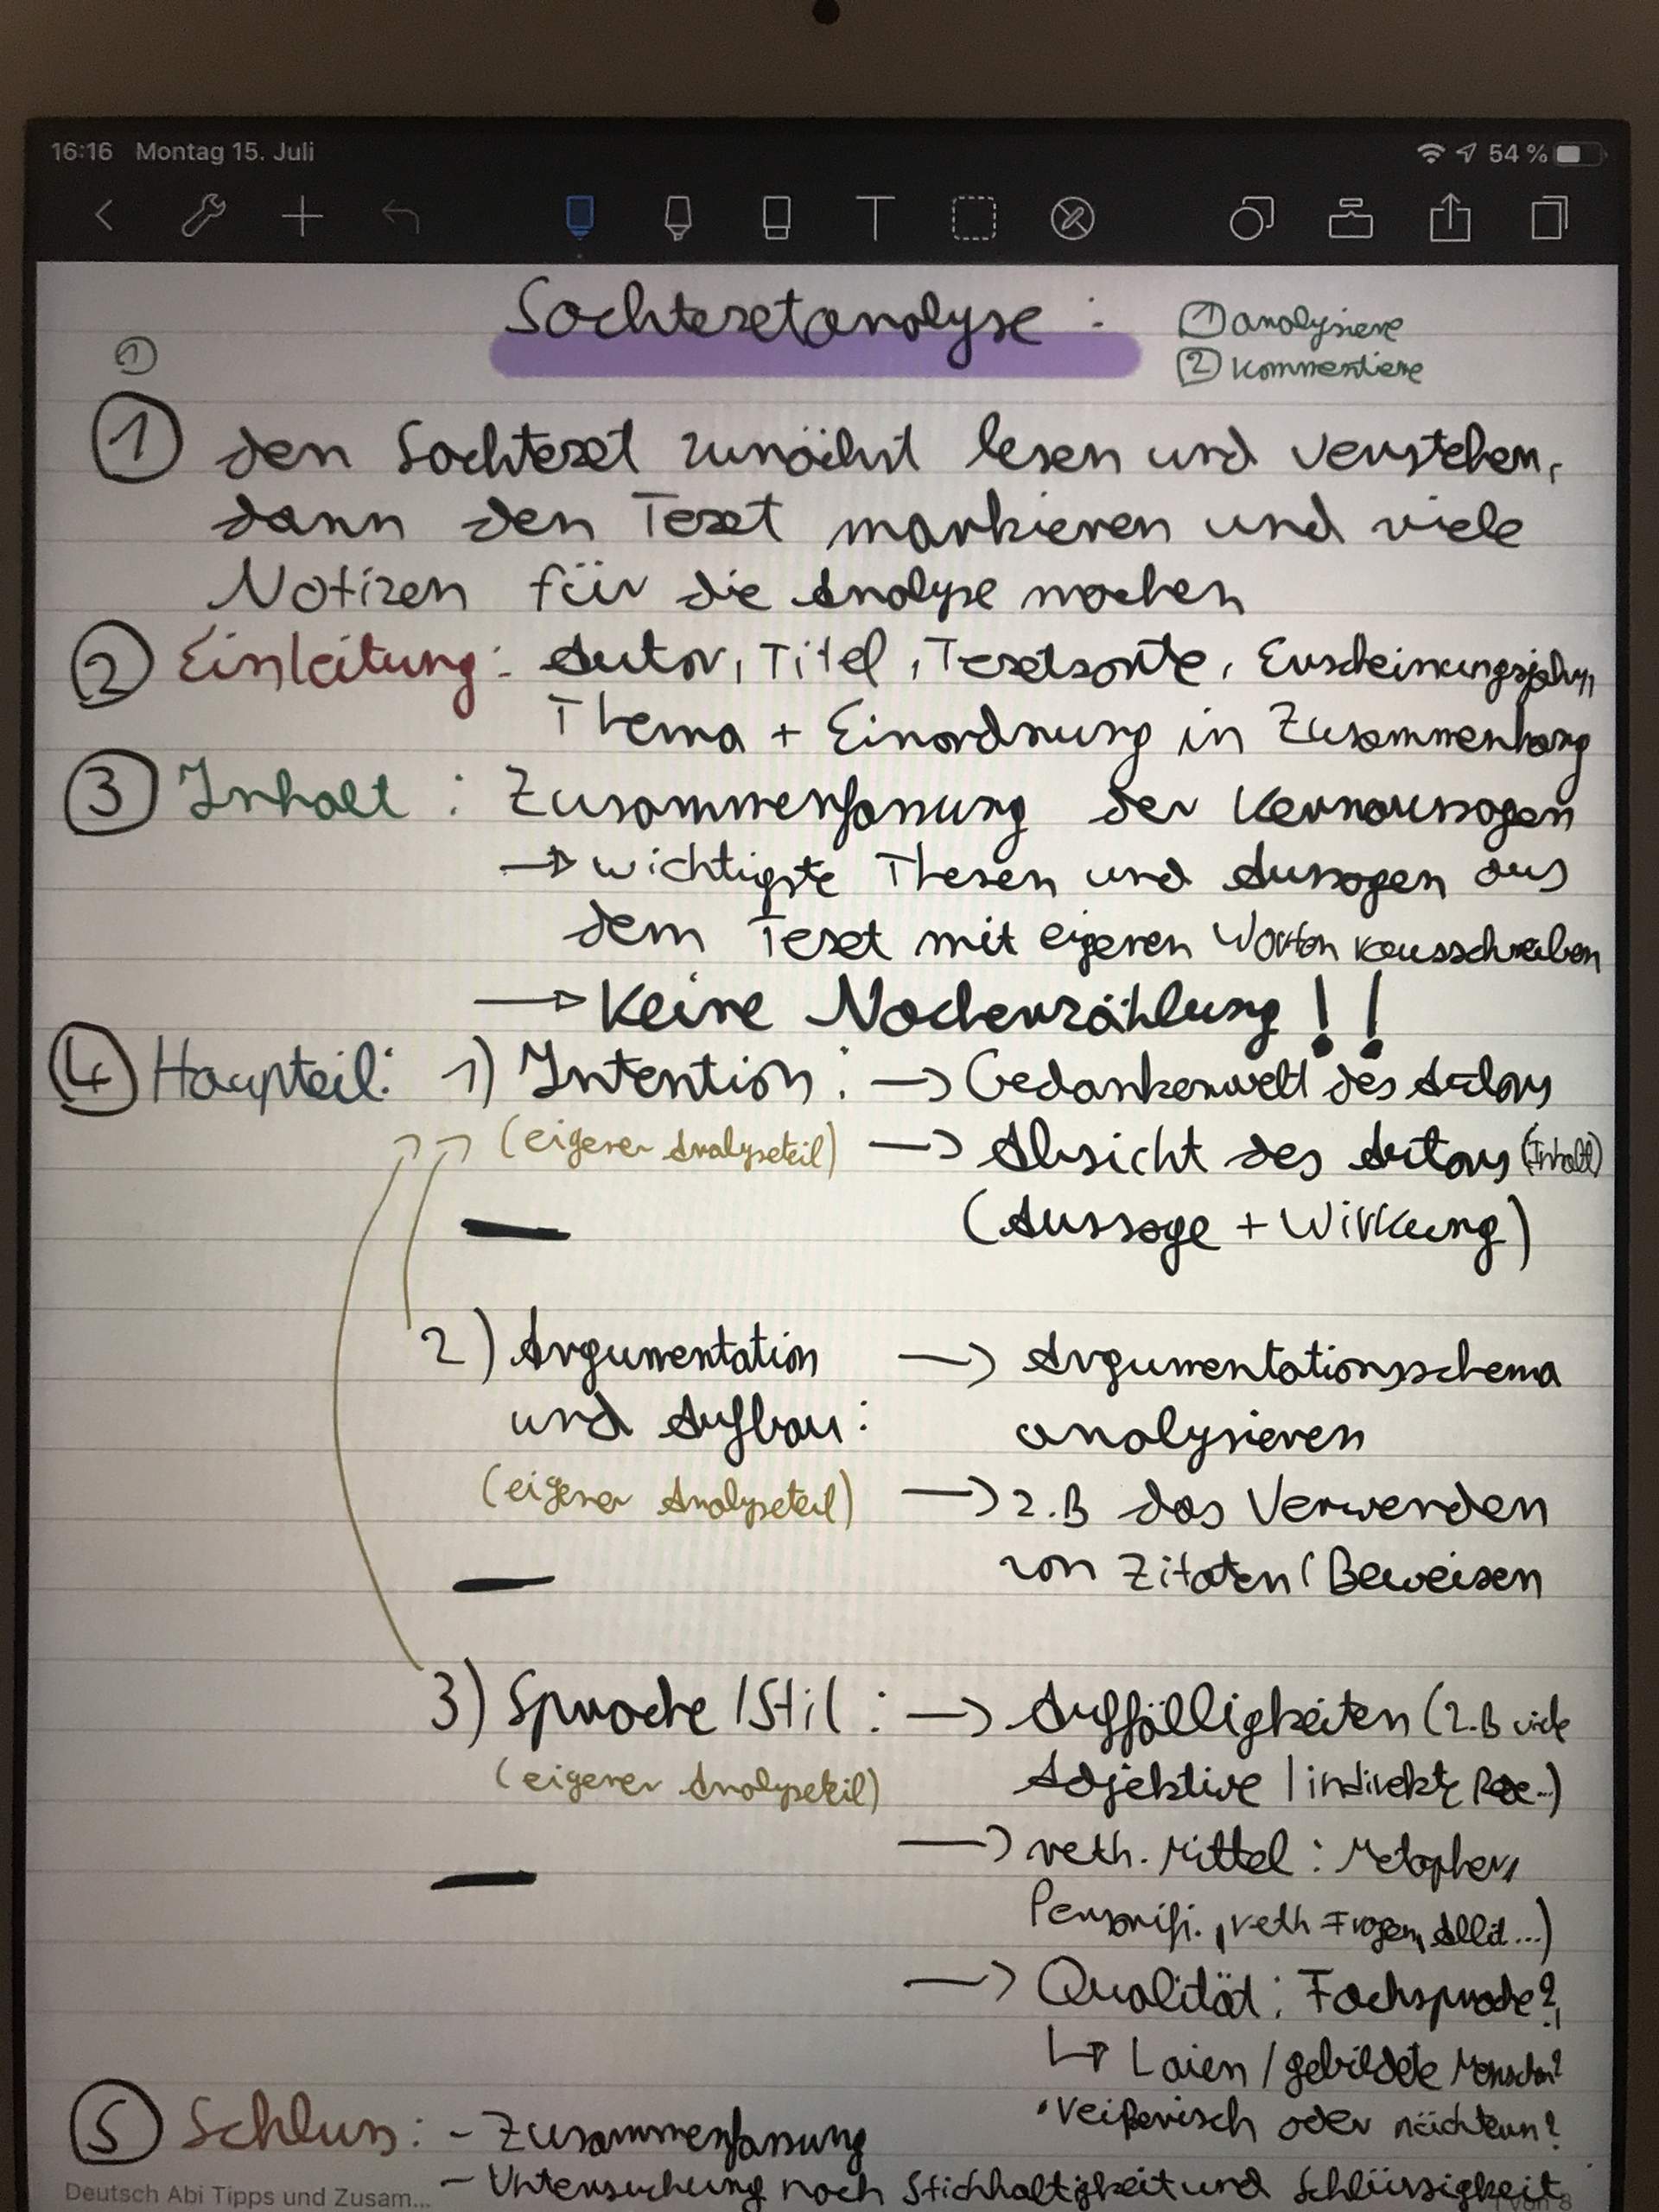 16:16 Montag 15. Juli
54 %
Sachtextanalyse :
1 analysiere
2 kommentiere
1
1 den Sachtext zunächst lesen und verstehen,
dann den Text markieren und viele
Notizen für die Analyse machen
2 Einleitung: Autor, Titel, Textsorte, Erscheinungsjahr,
Thema + Einordnung in Zusammenhang
3 Inhalt : Zusammenfassung der Kernaussagen
→ wichtigste Thesen und Aussagen aus
dem Text mit eigenen Worten rausschreiben
→ Keine Nacherzählung!!
4 Haupteil: 1) Intention : → Gedankenwelt des Autors
(eigener Analyseteil) → Absicht des Autors (Inhalt)
(Aussage + Wirkung)
2) Argumentation → Argumentationsschema
und Aufbau: analysieren
(eigener Analyseteil) → z.B das Verwenden
von Zitaten/Beweisen
3) Sprache/Stil : → Auffälligkeiten (z.B viele
(eigener Analyseteil) Adjektive / indirekte Rede..)
→ reth. Mittel : Metaphern,
Personifi., reth Fragen, Allit...)
→ Qualität: Fachsprache?,
↳ Laien / gebildete Menschen?
• reißerisch oder nüchtern?
5 Schluss: - Zusammenfassung
- Untersuchung nach Stichhaltigkeit und Schlüssigkeit
Deutsch Abi Tipps und Zusam...
1 von 8